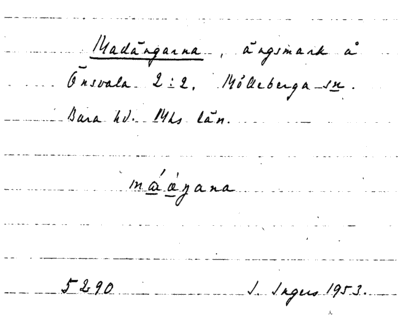 Madängarna, ängsmark å
Önsvala 2:2, Mölleberga sn.
Bara hd. Mhs län.
5290 I. Ingers 1953.